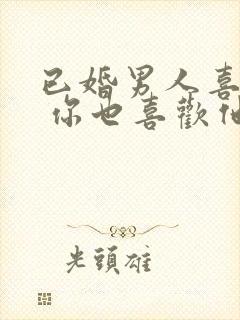 已婚男人喜
你也喜歡他
光頭雄